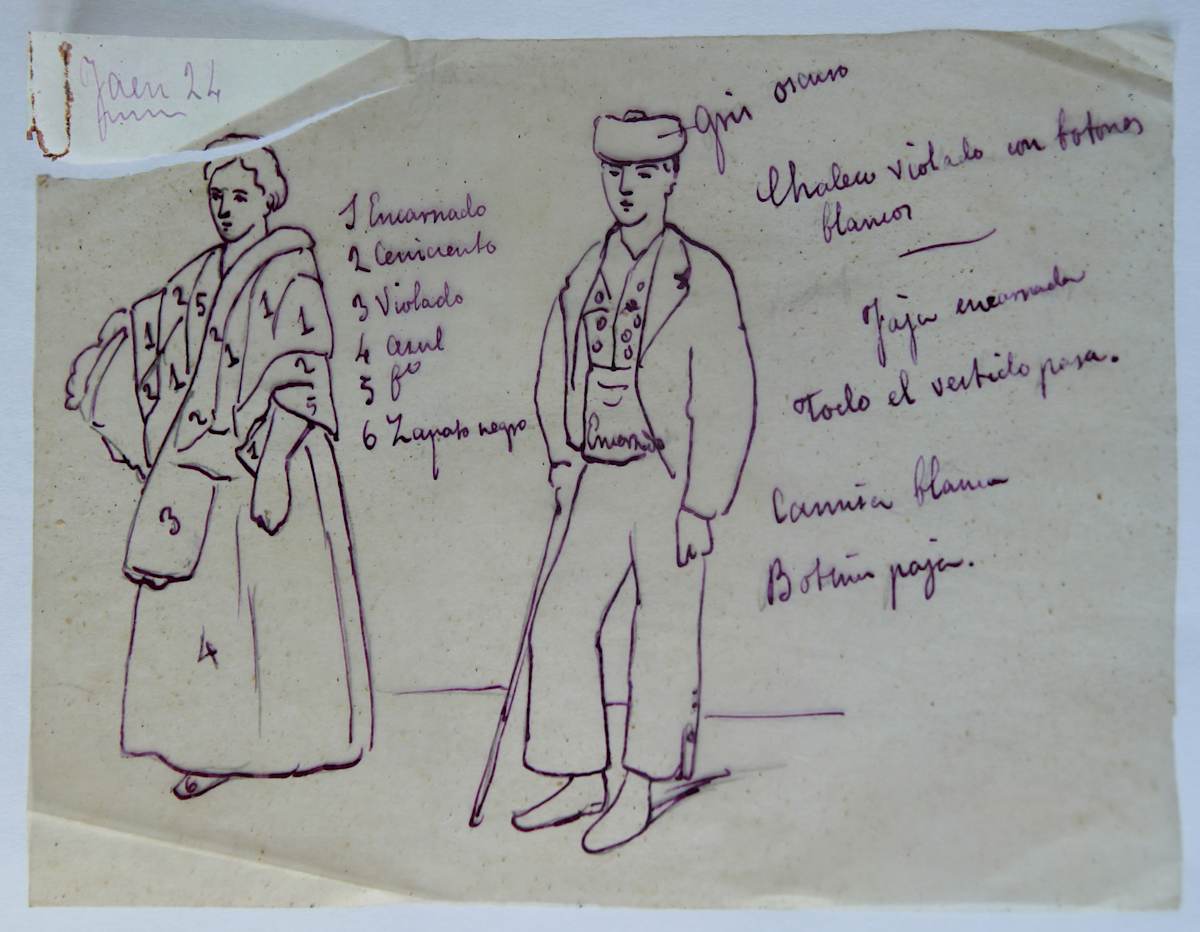 Jaen 24
1 Encarnado
2 Ceniciento
3 Violado
4 azul
5 fº
6 Zapato negro
Gris oscuro
Chaleco violado con botones
blancos
Faja encarnada
Todo el vestido pasa.
Camisa blanca
Botina paja.
Encarnado
1
2
5
1
1
2
1
2
1
2
2
5
1
3
4
6